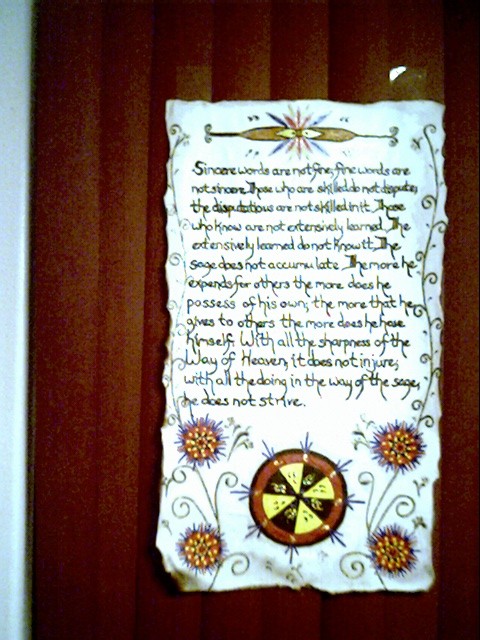 Sincere words are not fine; fine words are
not sincere. Those who are skilled do not dispute;
the disputatious are not skilled in it. Those
who know are not extensively learned. The
extensively learned do not know it. The
sage does not accumulate. The more he
expends for others the more does he
possess of his own; the more that he
gives to others the more does he hase
himself. With all the sharpness of the
Way of Heaven, it does not injure;
with all the doing in the way of the sage,
he does not strive.